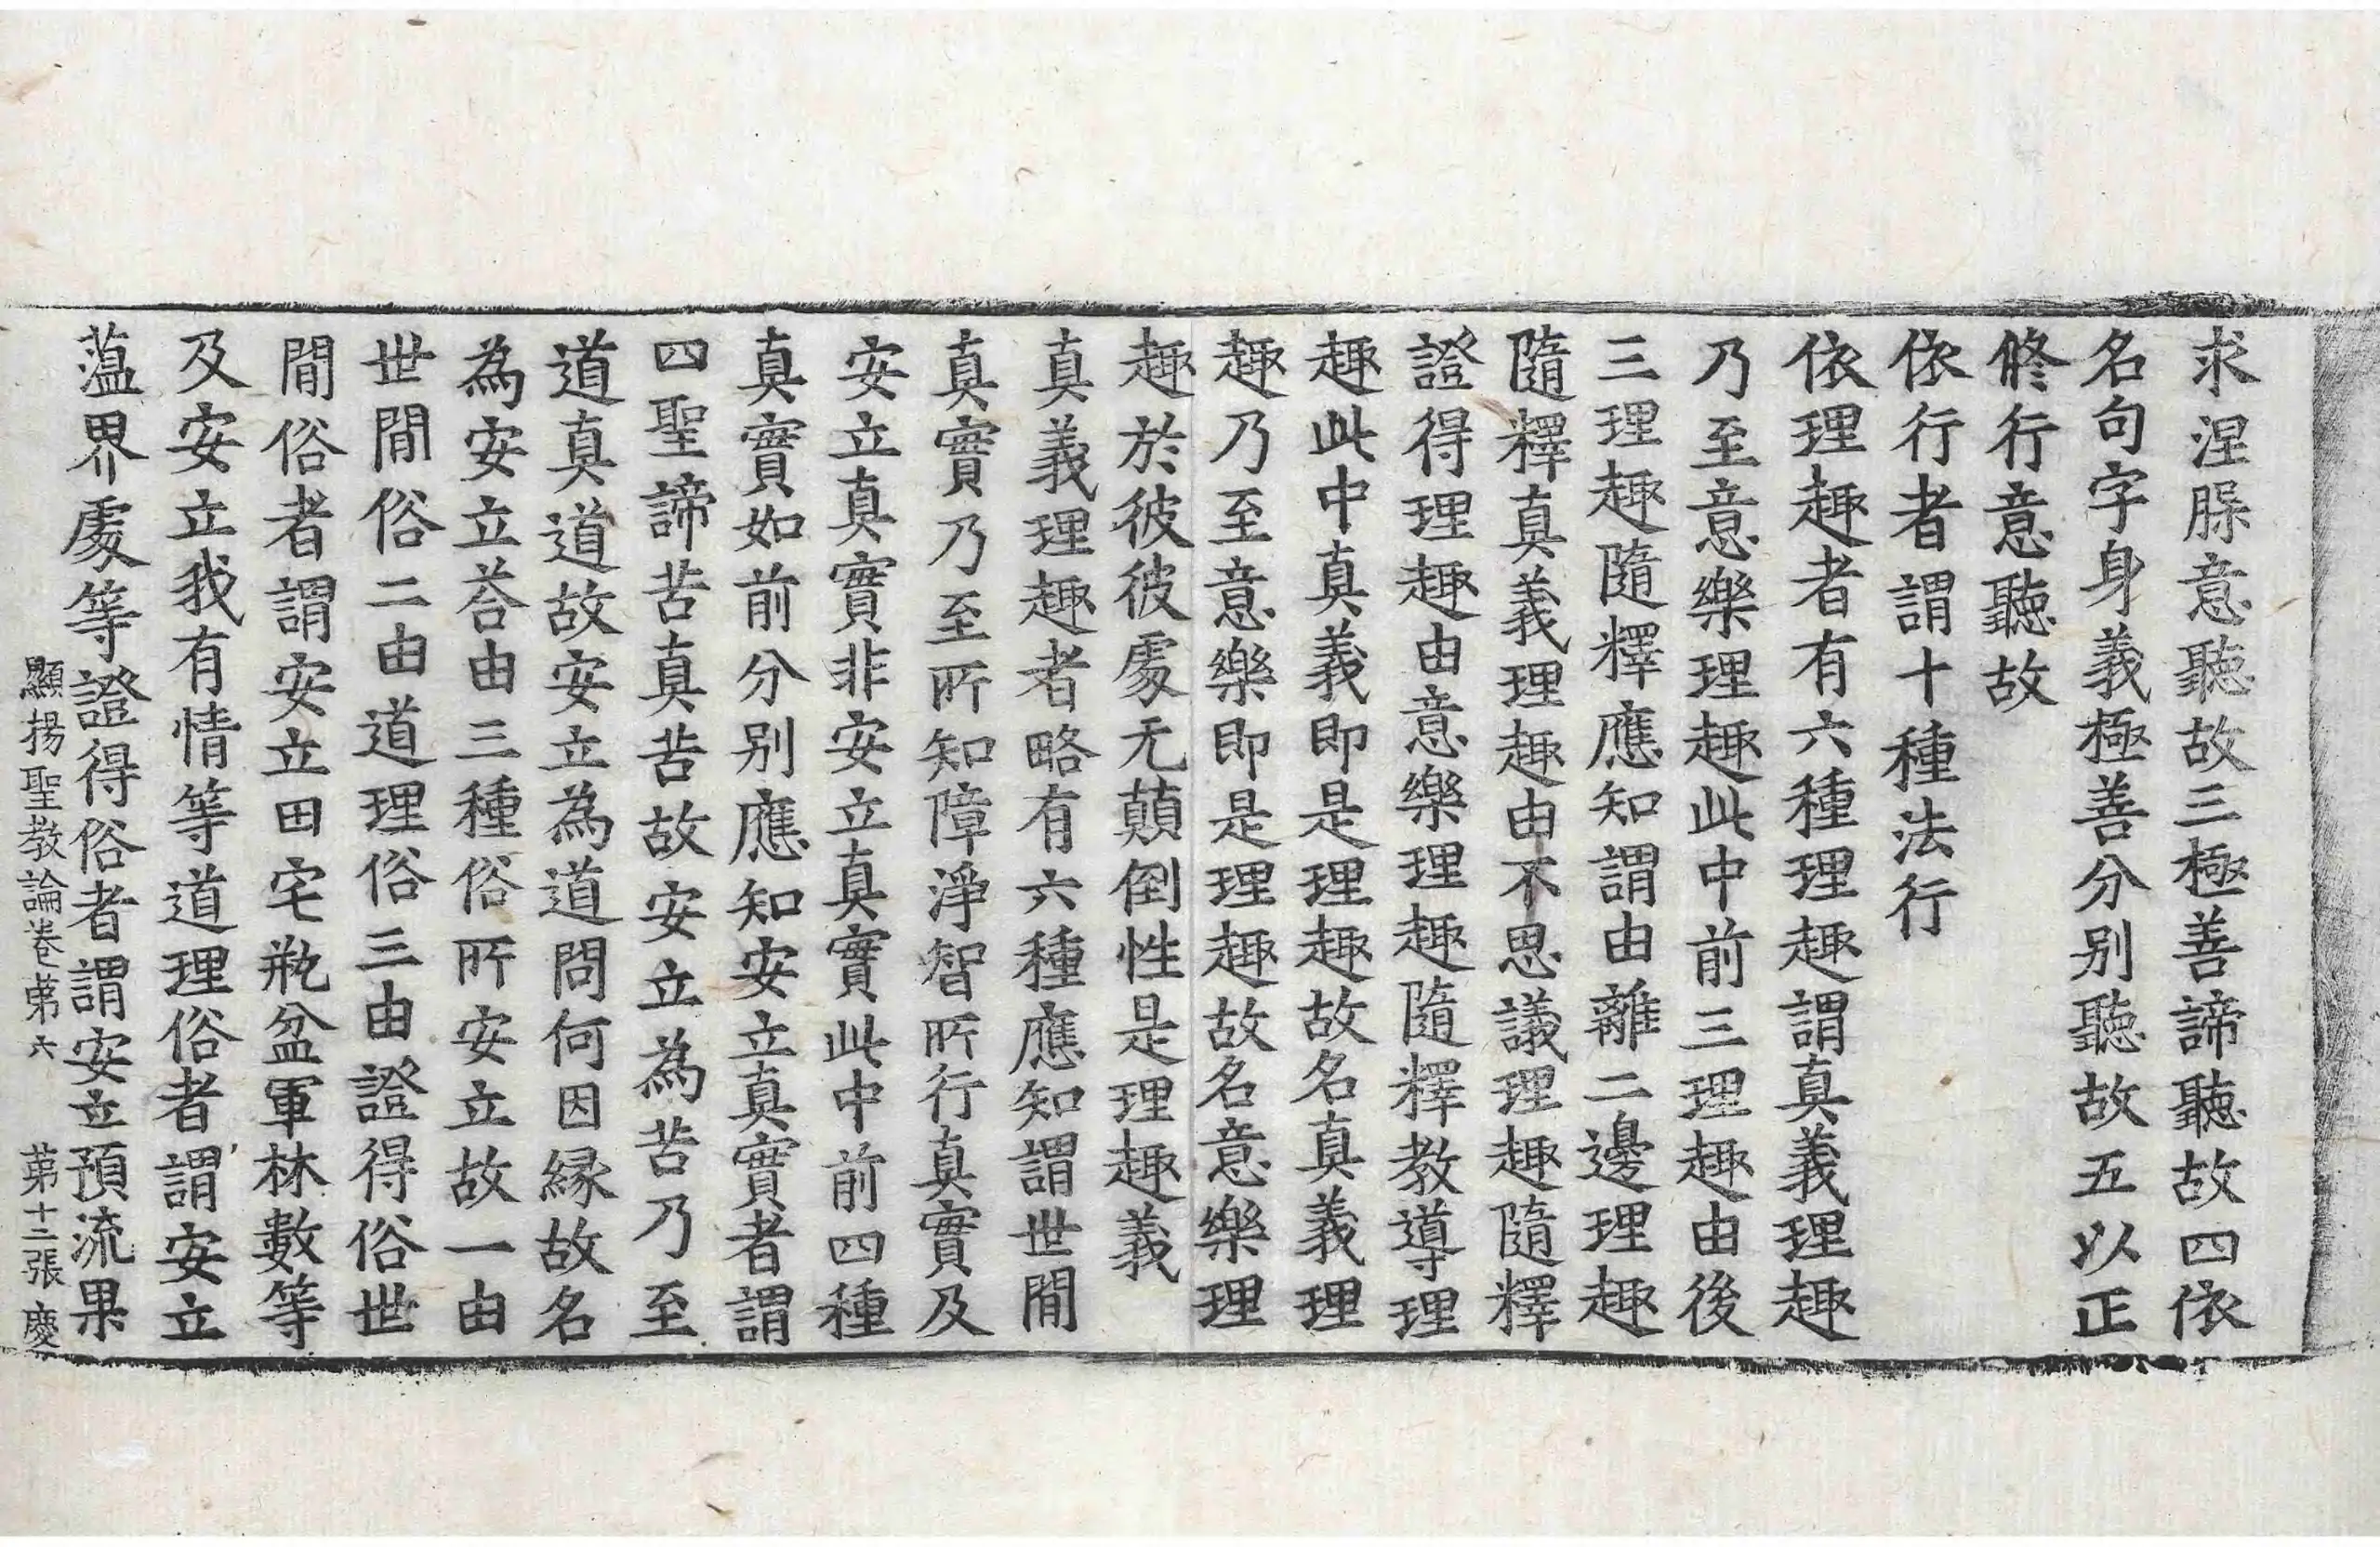 求涅槃意聽故三極善諦聽故四依
名句字身義極善分别聽故五以正
修行意聽故
依行者謂十種法行
依理趣者有六種理趣謂真義理趣
乃至意樂理趣此中前三理趣由後
三理趣隨釋應知謂由離二邊理趣
隨釋真義理趣由不思議理趣隨釋
證得理趣由意樂理趣隨釋教導理
趣此中真義即是理趣故名真義理
趣乃至意樂即是理趣故名意樂理
趣於彼彼處无顛倒性是理趣義
真義理趣者略有六種應知謂世間
真實乃至所知障淨智所行真實及
安立真實非安立真實此中前四種
真實如前分别應知安立真實者謂
四聖諦苦真苦故安立為苦乃至
道真道故安立為道問何因緣故名
為安立荅由三種俗所安立故一由
世間俗二由道理俗三由證得俗世
間俗者謂安立田宅瓶盆軍林數等
及安立我有情等道理俗者謂安立
蕰界處等證得俗者謂安立預流果
顯揚聖教論卷第六 第十二張 慶